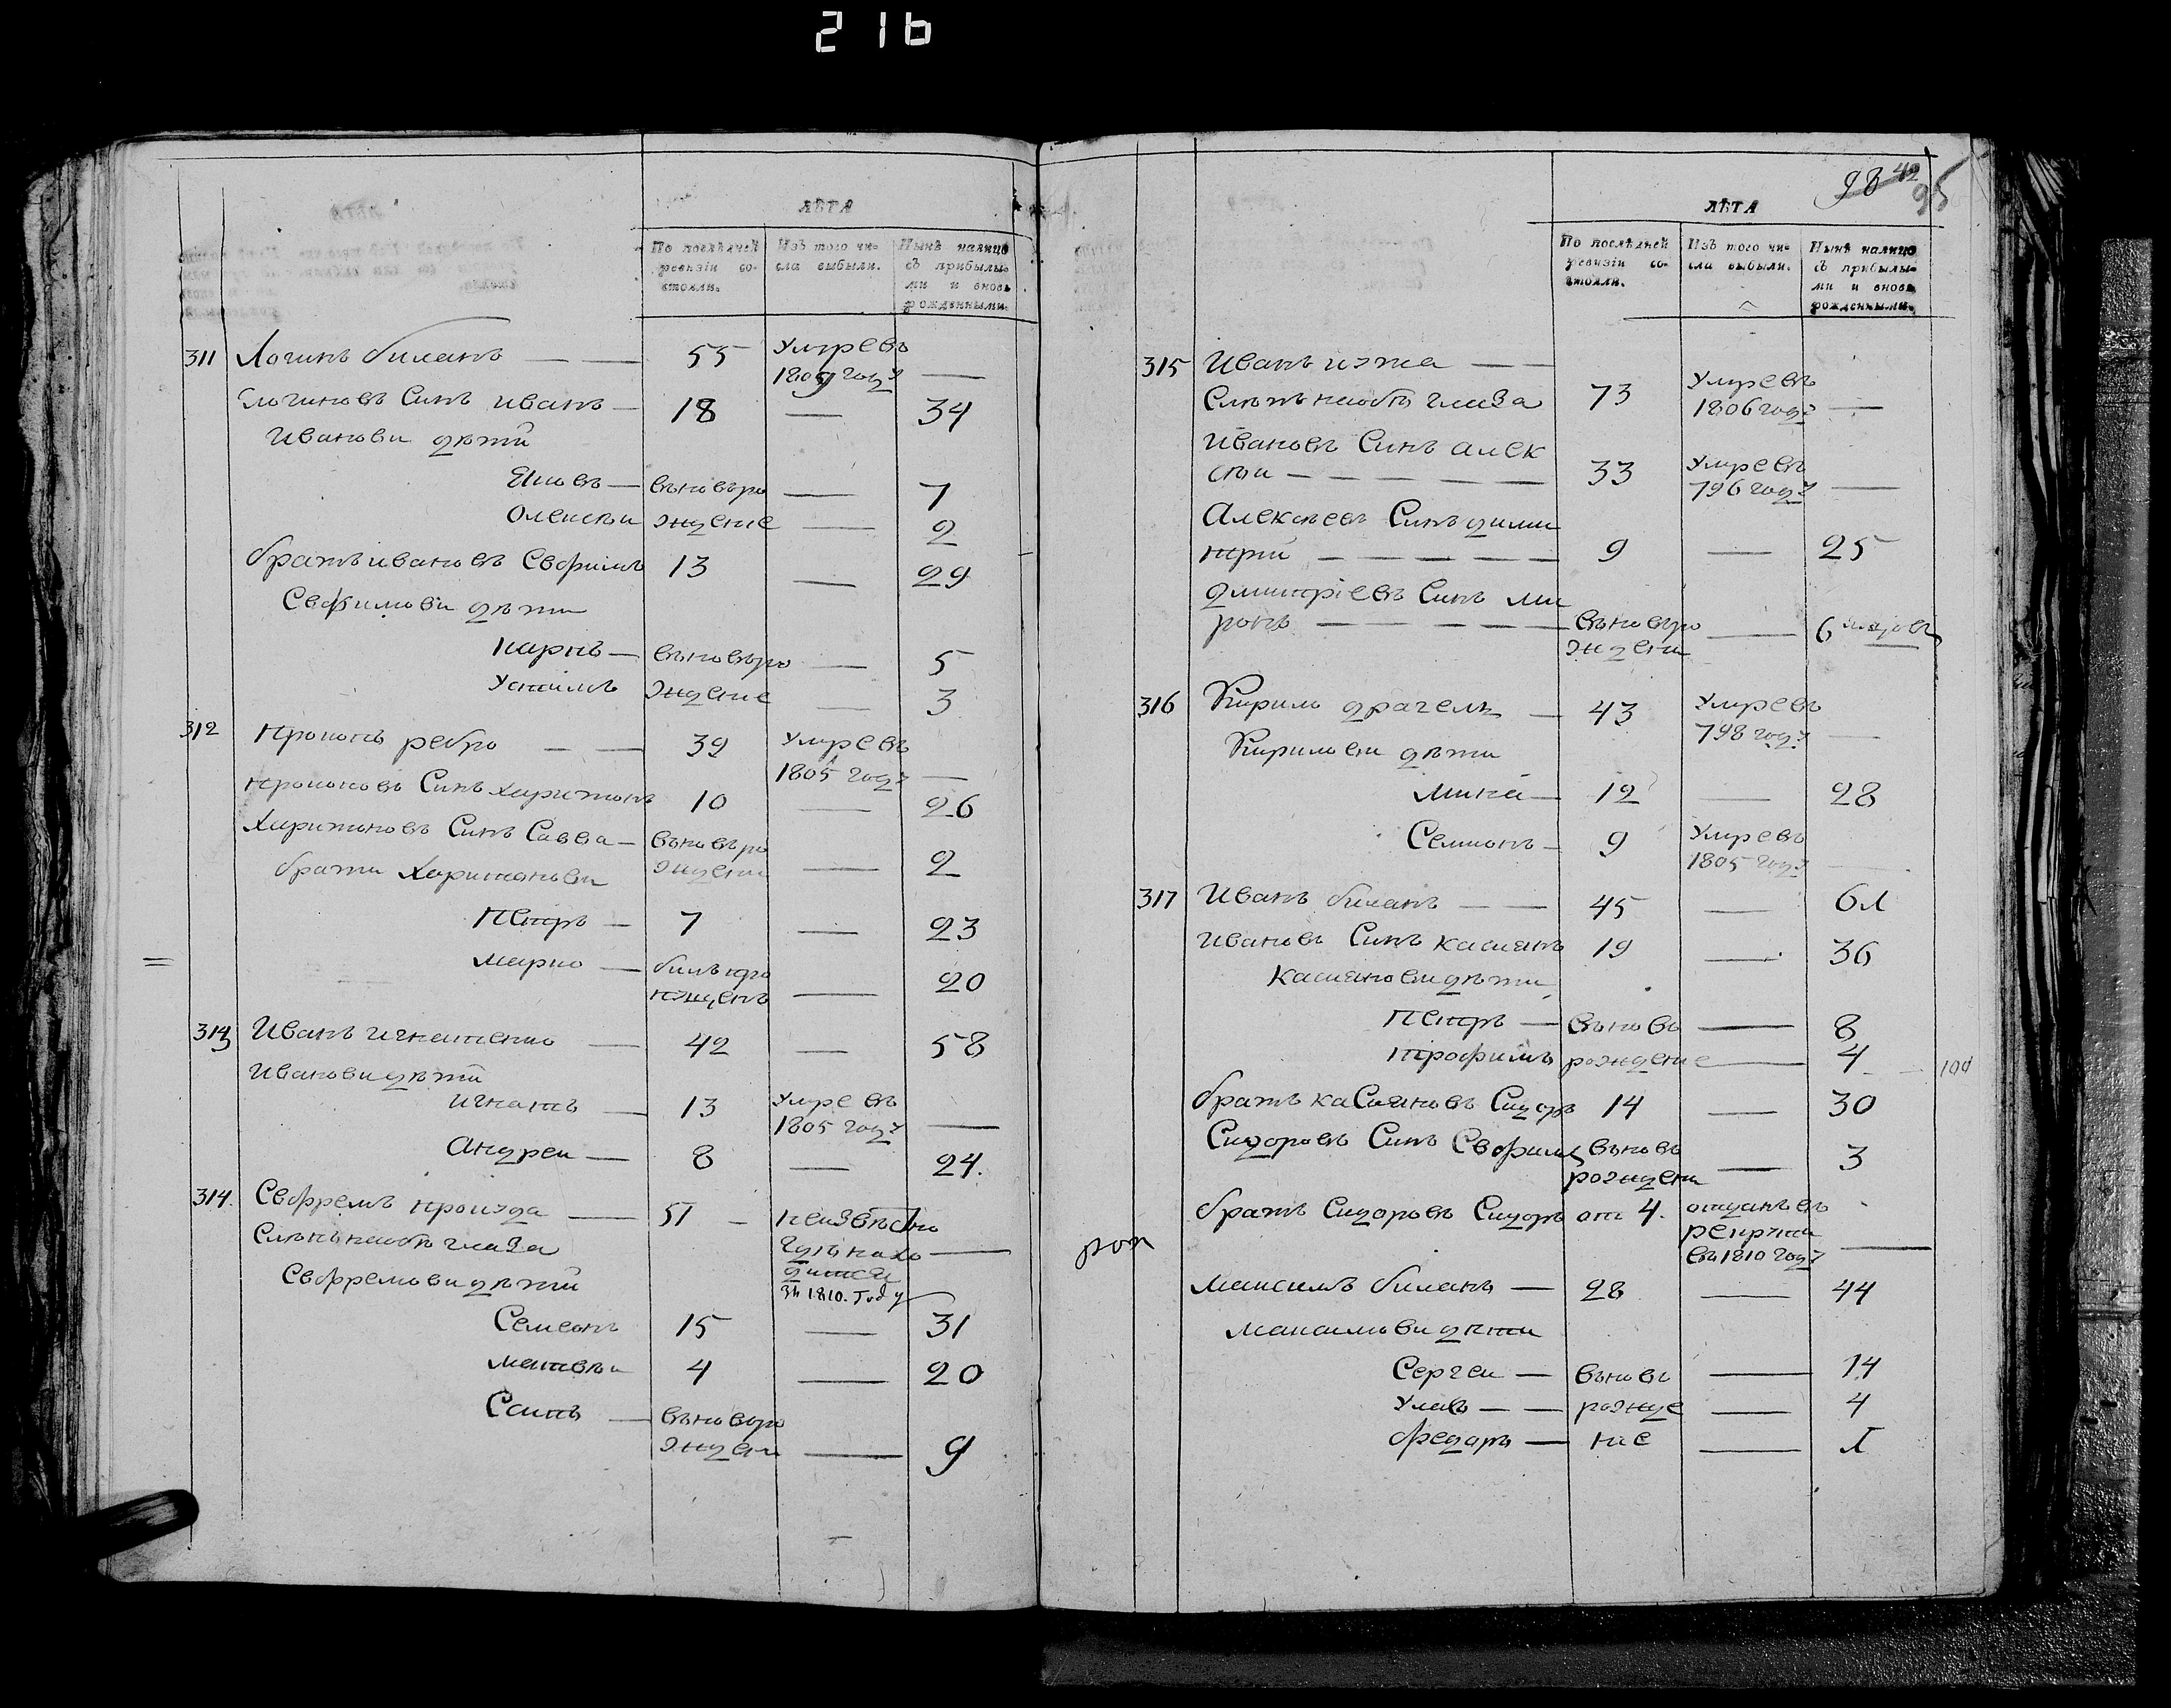 216
ЛѢТА
По послѣдней ревизіи со-
стояли.
Изъ того чи-
сла выбыли.
Нынѣ налицо
съ прибылы-
ми и вновь
рожденными.
311 Логинъ биланъ — — 55 Умре въ
1809 году —
Логиновъ Синъ иванъ — 18 — 34
Иванови дѣти
Яковъ — вьновьро — 7
Олексѣи жденіе — 2
братъ ивановъ Євфимъ 13 — 29
Євфимови дѣти
карпъ — вьновьро — 5
Устимъ жденіе — 3
312 прокопъ ребро — — 39 Умре въ
1805 году —
прокоповъ Синъ харитонъ 10 — 26
Харитоновъ Синъ Савва — вьновьро
ждени — 2
брати Харитонови
Петръ — 7 — 23
марко — билъ про
пжщенъ — 20
313 Иванъ игнатенко — 42 — 58
Иванови дѣти
игнатъ — 13 Умре въ
1805 году —
Андреи — 8 — 24.
314. Євфремъ 51 — неизвѣстно
гдѣ нахо —
дится
зъ 1810. Году
Слѣпъ наобѣ глаза
Євфремови дѣти
Семенъ 15 — 31
матвѣи 4 — 20
— вьновьро
ждени — 9
98 42
95
ЛѢТА
По послѣдней
ревизіи со-
стояли.
Изъ того чи-
сла выбыли.
Нынѣ налицо
съ прибылы-
ми и вновь
рожденными.
315 Иванъ — —
Слѣпъ наобѣ глаза 73 Умре въ
1806 году —
Ивановъ Синъ алек
сѣи — — — — — 33 Умре въ
796 году —
Алексѣевъ Синъ дими
трій — — — — — 9 — 25
Дмитріевъ Синъ ми
ронъ — — — — — вьновьро
ждени — 6
316 Кирило драгель — 43 Умре въ
798 году —
Кирилови дѣти
мина — 12 — 28
Семионъ — 9 Умре въ
1805 году —
317 Иванъ биланъ — — 45 — 61
Ивановъ Синъ касиянъ 19 — 36
Касиянови дѣти
Петръ — вьновь — 8
трофимъ рожденіе — 4
104
братъ каСияновъ Сидоръ 14 — 30
Сидоровъ Синъ Євфимъ вьновь
рождени — 3
братъ Сидоровъ Сидоръ отъ 4. отданъ въ
рекруты
въ 1810 году —
максимъ биланъ — 28 — 44
максимови дѣти
Сергеи — вьновь — 14
Улас — — рожде — 4
федоръ — ніе — 1